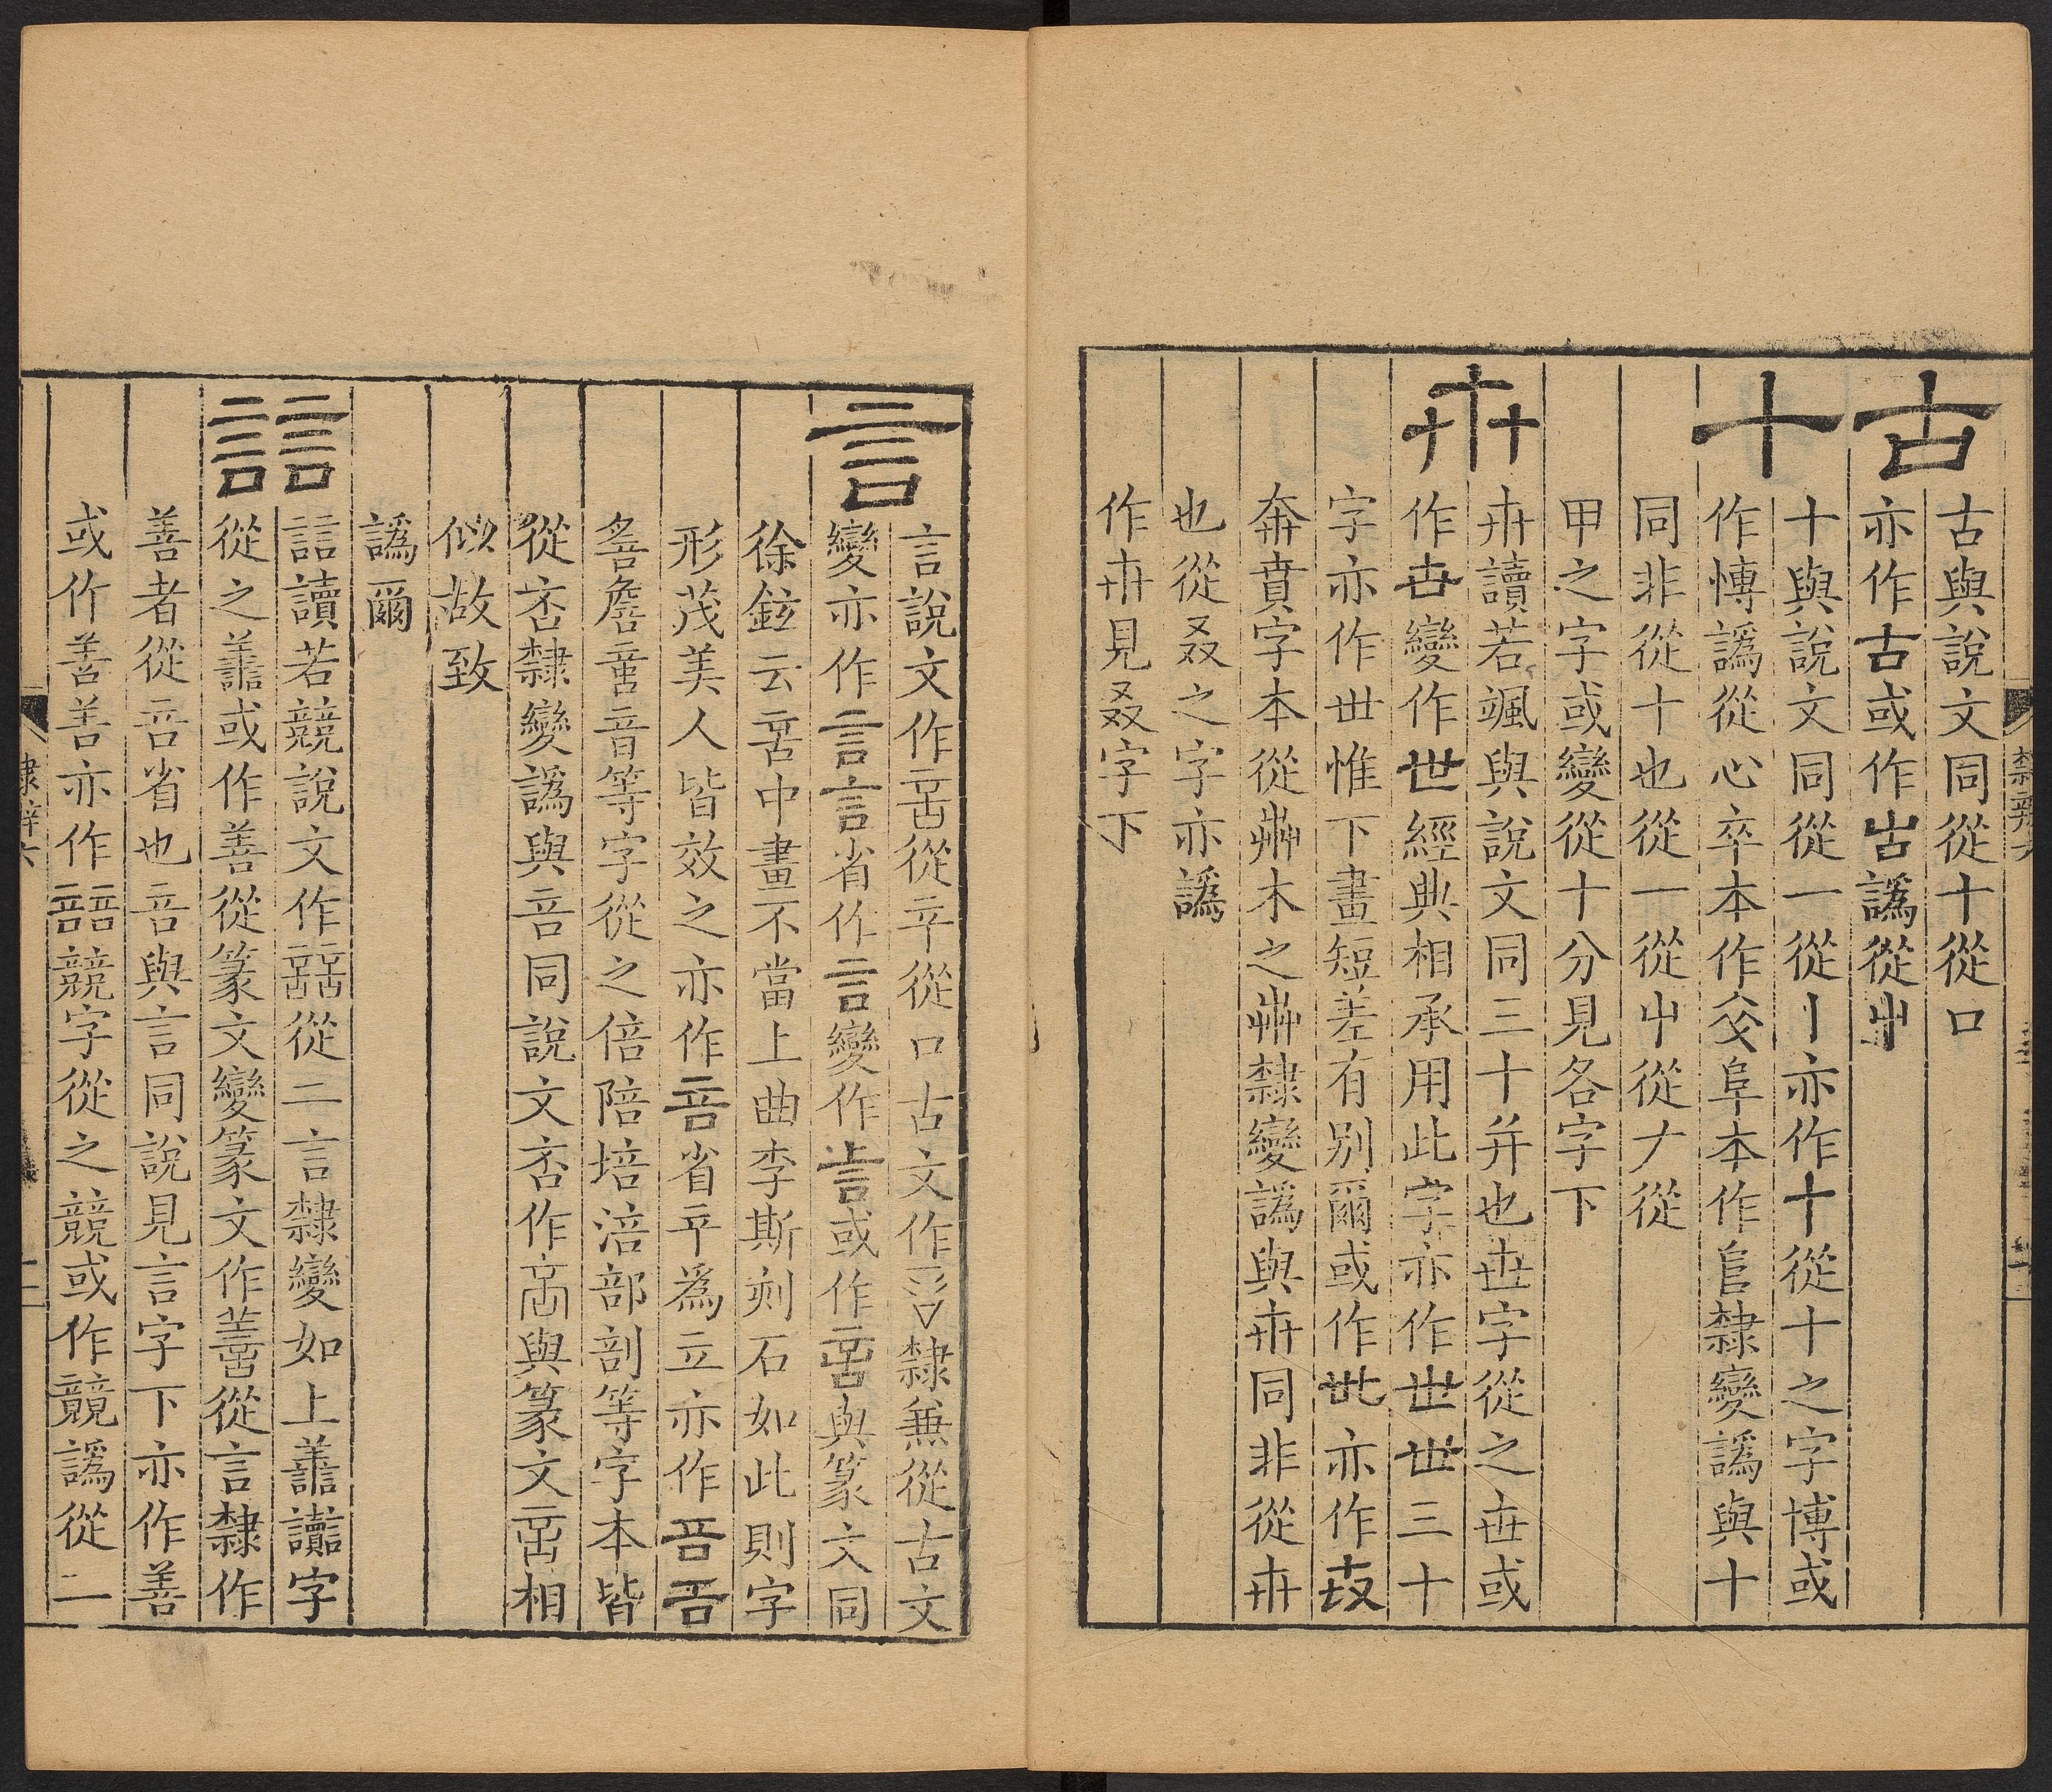 古
古與說文同從十從口
亦作古或作㕳譌從屮
十
十與說文同從一從丨亦作十從十之字博或
作愽譌從心卒本作㚇阜本作𨸏隸變譌與十
同非從十也從一從屮從𠂇從
甲之字或變從十分見各字下
卅
卅讀若颯與說文同三十并也世字從之世或
作世變作世經典相承用此字亦作世丗三十
字亦作丗惟下畫短差有別爾或作亦作
奔賁字本從芔木之芔隸變譌與卉同非從卉
也從叒之字亦譌
作卉見叒字下
言
言說文作𠱫從䇂從口古文作隸無從古文
變亦作言言省作言變作或作𠱫與篆文同
徐鉉云𠱫中畫不當上曲李斯刻石如此則字
形茂美人皆效之亦作咅省䇂為立亦作
詹音等字從之倍陪培涪部剖等字本皆
從否隸變譌與咅同說文否作與篆文𠱫相
似故致
譌爾
誩
誩讀若競說文作從二言隸變如上譱讟字
從之譱或作善從篆文變篆文作從言隸作
善者從咅省也咅與言同說見言字下亦作善
或作善善亦作競字從之競或作競譌從二
隸辨六
隸辨六
二